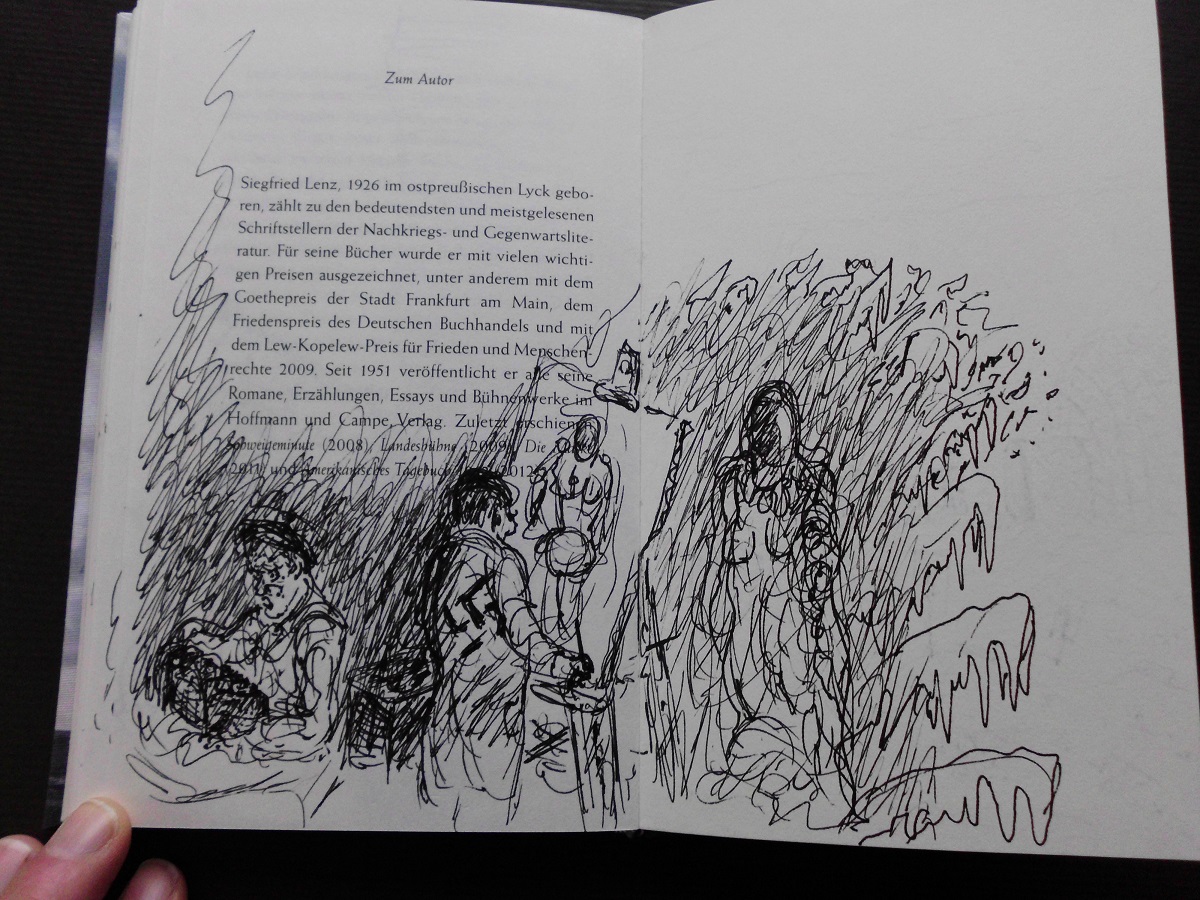 Zum Autor
Siegfried Lenz, 1926 im ostpreußischen Lyck gebo-
ren, zählt zu den bedeutendsten und meistgelesenen
Schriftstellern der Nachkriegs- und Gegenwartslite-
ratur. Für seine Bücher wurde er mit vielen wichti-
gen Preisen ausgezeichnet, unter anderem mit dem
Goethepreis der Stadt Frankfurt am Main, dem
Friedenspreis des Deutschen Buchhandels und mit
dem Lew-Kopelew-Preis für Frieden und Menschen-
rechte 2009. Seit 1951 veröffentlicht er alle seine
Romane, Erzählungen, Essays und Bühnenwerke im
Hoffmann und Campe Verlag. Zuletzt erschienen
Schweigeminute (2008), Landesbühne (2009), Die
(2011) und Amerikanisches Tagebuch 2012